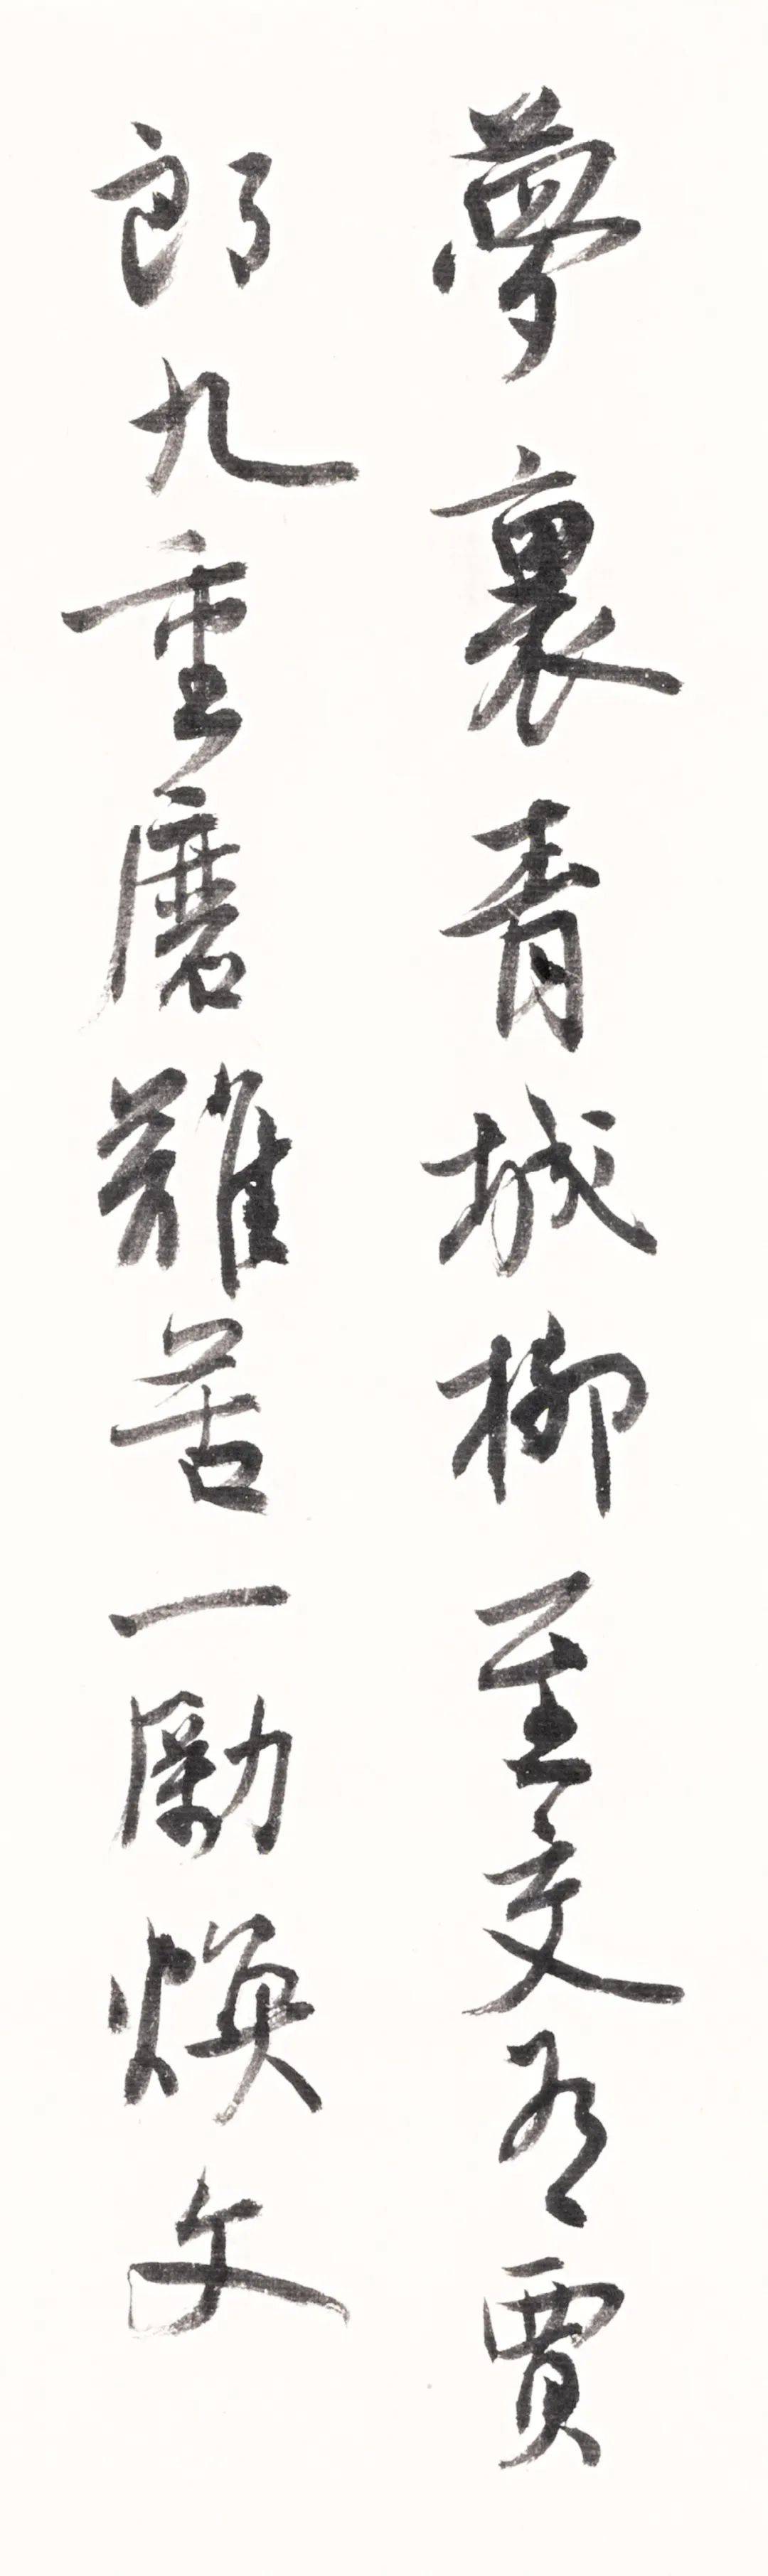 夢裏青城柳至交為賈
郎九重磨難苦一勵煥文